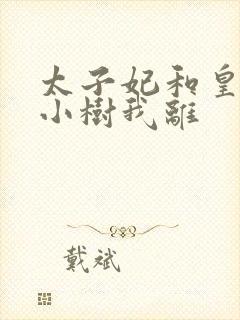 太子妃和皇
小樹我離
戴斌